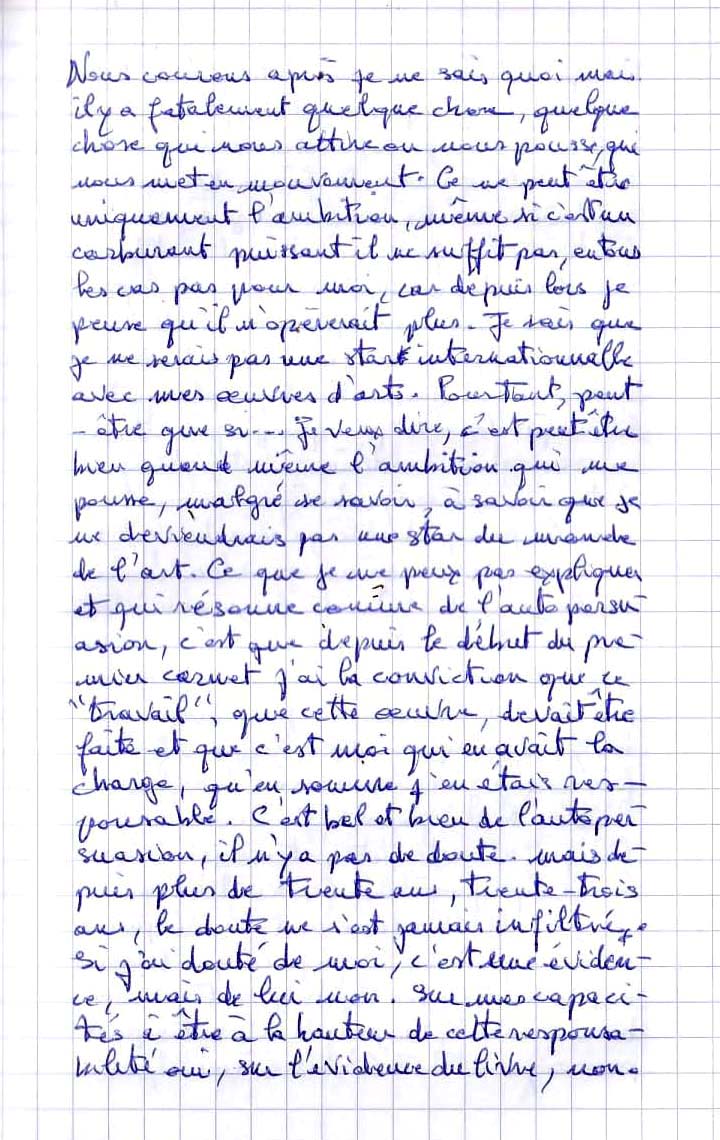 Nous courons après je ne sais quoi mais
il y a fatalement quelque chose, quelque
chose qui nous attire ou nous pousse, qui
nous met en mouvement. Ce ne peut être
uniquement l'ambition, même si c'est un
carburant puissant il ne suffit pas, en tous
les cas pas pour moi, car depuis lors je
pense qu'il n'opèrerait plus. Je sais que
je ne serais pas une star internationnalle
avec mes œuvres d'arts. Pourtant, peut
-être que si... Je veux dire, c'est peut être
bien quand même l'ambition qui me
pousse, malgré se savoir, à savoir que je
ne deviendrais pas une star du monde
de l'art. Ce que je ne peux pas expliquer
et qui résonne comme de l'auto persu-
asion, c'est que depuis le début du pre-
mier carnet j'ai la conviction que ce
"travail", que cette œuvre, devait être
faite et que c'est moi qui en avait la
charge, qu'en somme j'en étais res-
ponsable. C'est bel et bien de l'autoper
suasion, il n'y a pas de doute. mais de-
puis plus de trente ans, trente-trois
ans, le doute ne s'est jamais infiltré.
Si j'ai douté de moi, c'est une éviden-
ce, mais de lui non. Sur mes capaci-
tés à être à la hauteur de cette responsa-
bilité oui, sur l'évidence du livre, non.